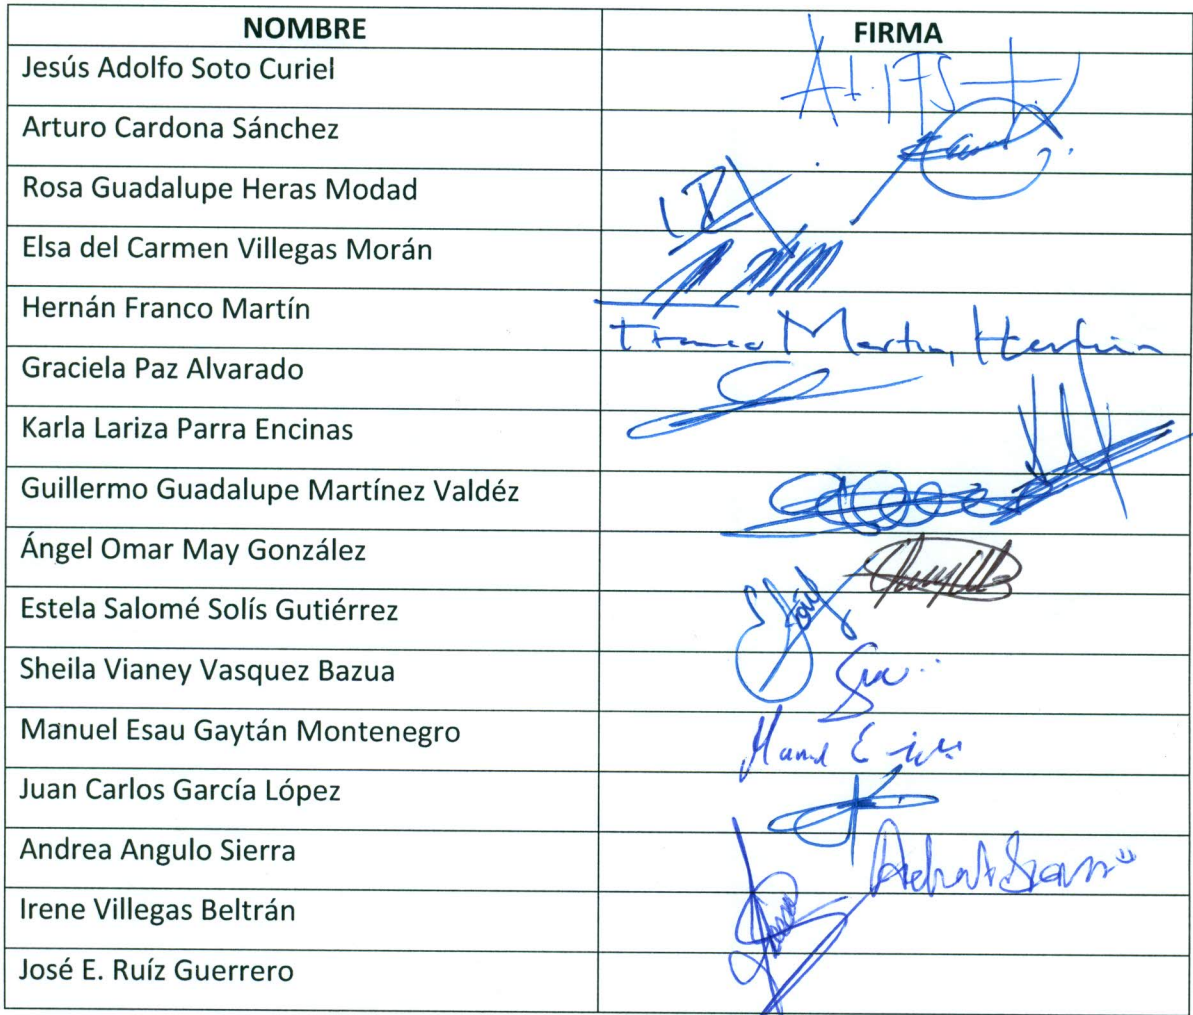 NOMBRE FIRMA
Jesús Adolfo Soto Curiel
Arturo Cardona Sánchez
Rosa Guadalupe Heras Modad
Elsa del Carmen Villegas Morán
Hernán Franco Martín Franco Martin, Hernán
Graciela Paz Alvarado
Karla Lariza Parra Encinas
Guillermo Guadalupe Martínez Valdéz
Ángel Omar May González
Estela Salomé Solís Gutiérrez
Sheila Vianey Vasquez Bazua
Manuel Esau Gaytán Montenegro
Juan Carlos García López
Andrea Angulo Sierra
Irene Villegas Beltrán
José E. Ruíz Guerrero